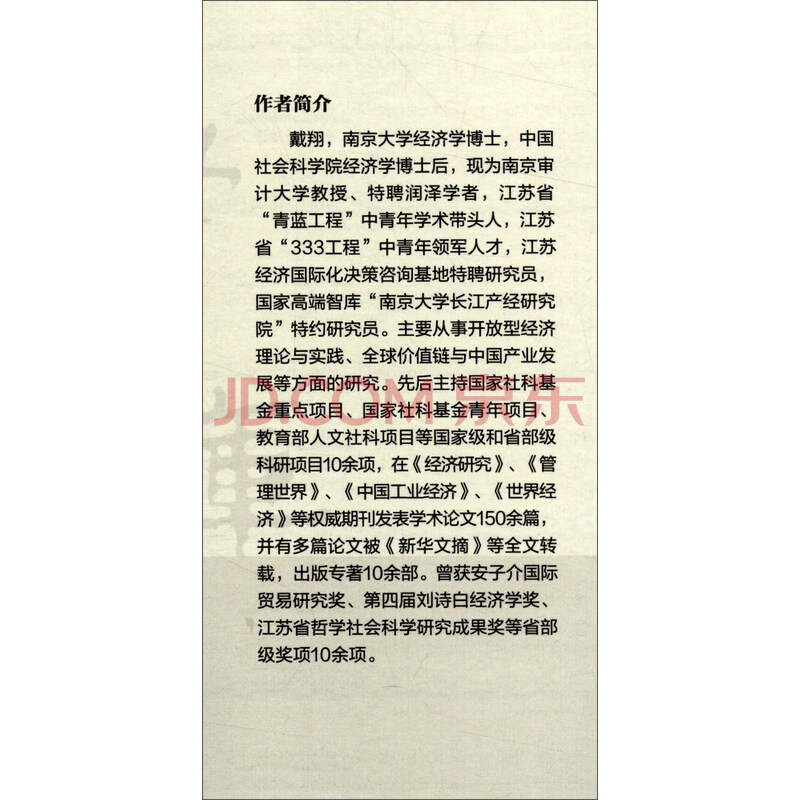 作者简介
戴翔，南京大学经济学博士，中国
社会科学院经济学博士后，现为南京审
计大学教授、特聘润泽学者，江苏省
“青蓝工程”中青年学术带头人，江苏
省“333工程”中青年领军人才，江苏
经济国际化决策咨询基地特聘研究员，
国家高端智库“南京大学长江产经研究
院”特约研究员。主要从事开放型经济
理论与实践、全球价值链与中国产业发
展等方面的研究。先后主持国家社科基
金重点项目、国家社科基金青年项目、
教育部人文社科项目等国家级和省部级
科研项目10余项，在《经济研究》、《管
理世界》、《中国工业经济》、《世界经
济》等权威期刊发表学术论文150余篇，
并有多篇论文被《新华文摘》等全文转
载，出版专著10余部。曾获安子介国际
贸易研究奖、第四届刘诗白经济学奖、
江苏省哲学社会科学研究成果奖等省部
级奖项10余项。
JD.COM 京东